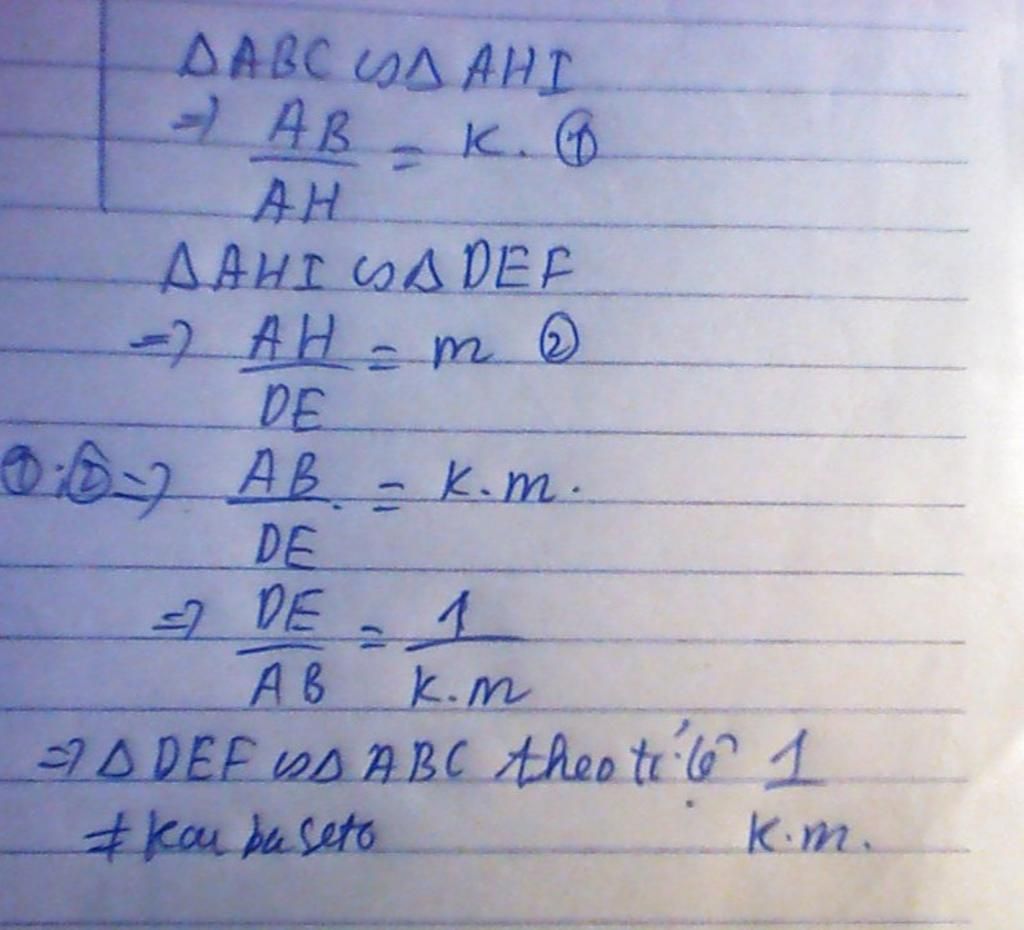 ΔABC ∽ Δ AHI
=> AB/AH = K. ①
ΔAHI ∽ Δ DEF
=> AH/DE = m ②
①:② => AB/DE = K.m.
=> DE/AB = 1/K.m
=> Δ DEF ∽ Δ ABC theo tỉ số 1/K.m.